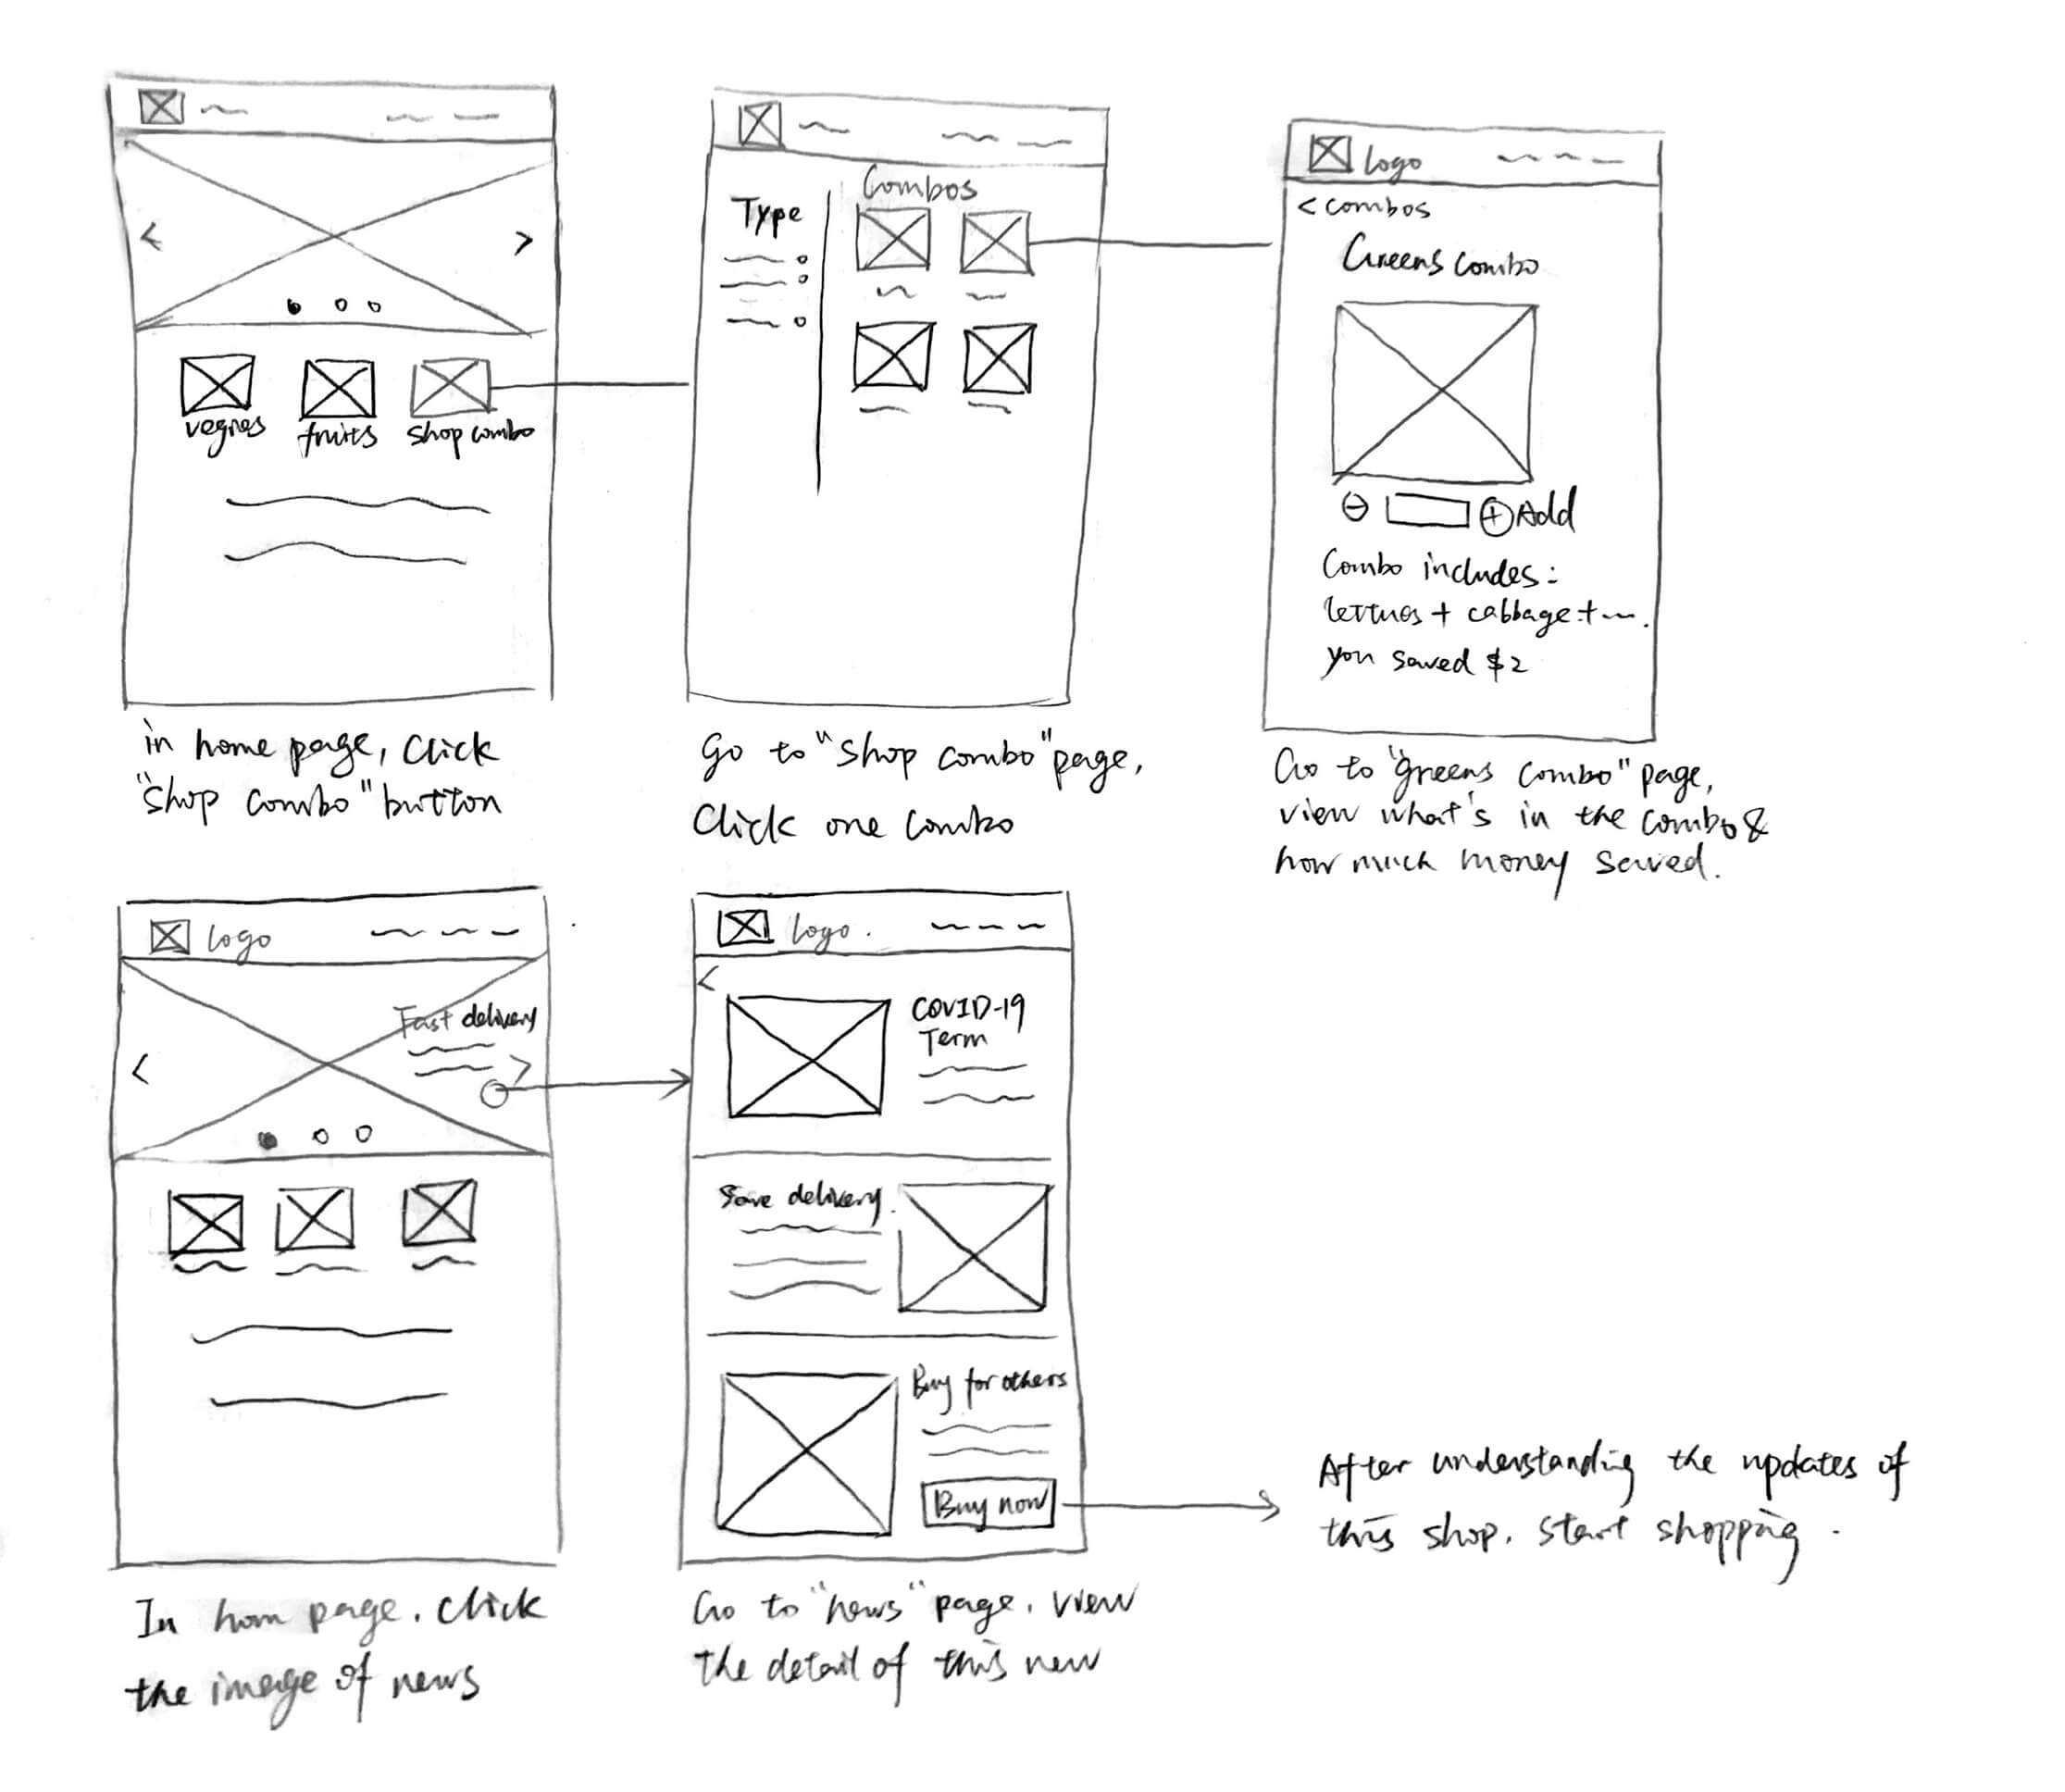 vegies
fruits
shop combo
in home page, click
"shop combo" button
Type
Combos
Go to "shop combo" page,
Click one combo
logo
< combos
Greens combo
Add
Combo includes:
lettues + cabbage + ~.
you saved $2
Go to "greens combo" page,
view what's in the combo &
how much money saved.
logo
Fast delivery
In hom page, click
the image of news
logo.
<
COVID-19
Term
Save delivery.
Buy for others
Buy now
Go to "news" page, view
the detail of this new
After understanding the updates of
this shop, start shopping.